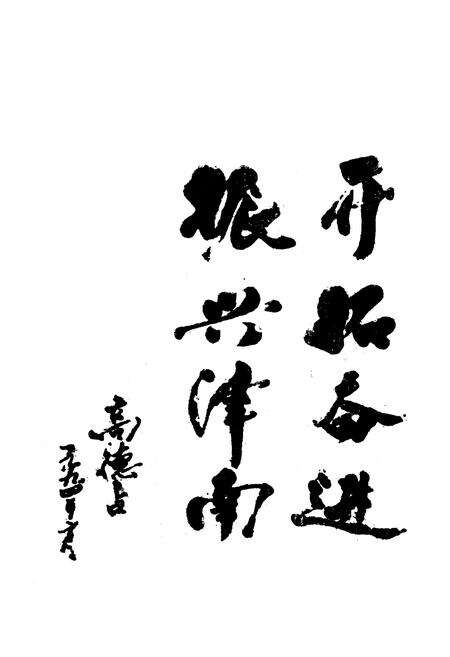 开拓奋进
振兴津南
高德占
一九九四年六月